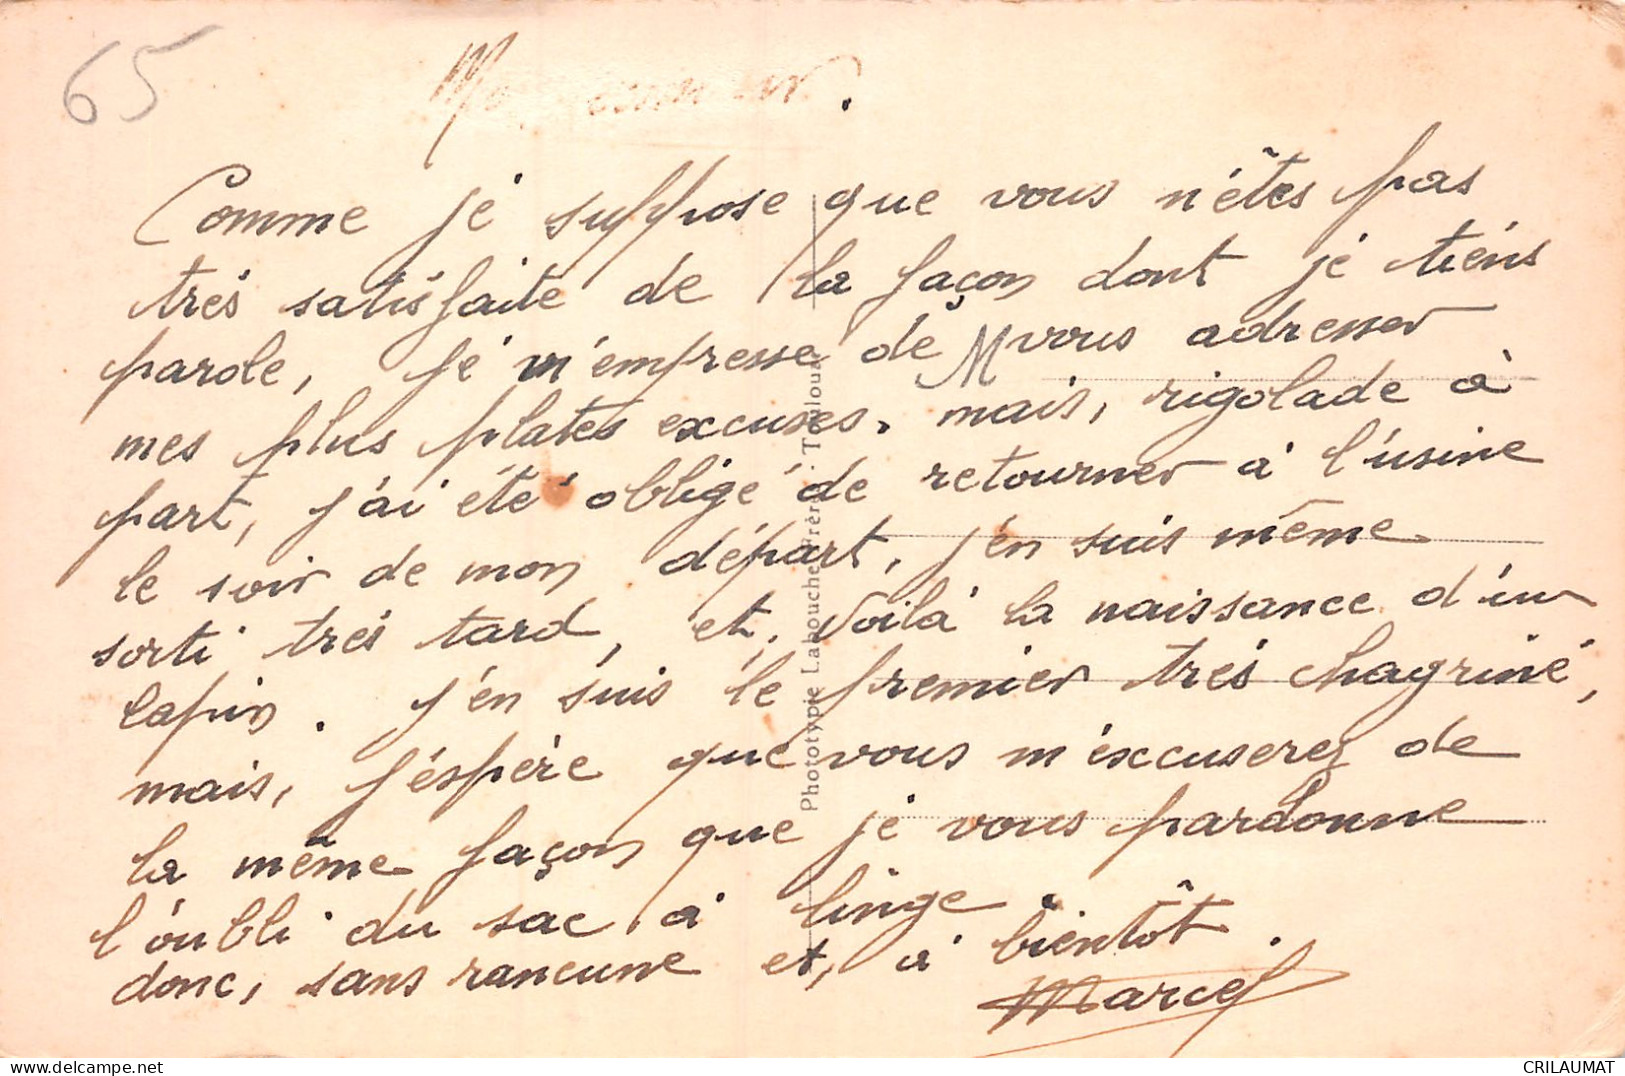 65
Comme je suppose que vous n'êtes pas
très satisfaite de la façon dont je tiens
parole, je m'empresse de vous adresser
mes plus plates excuses. mais, rigolade à
part, j'ai été obligé de retourner à l'usine
le soir de mon départ, j'en suis même
sorti très tard, et, voilà la naissance d'un
lapin. j'en suis le premier très chagriné,
mais, j'éspère que vous m'éxcuserez de
la même façon que je vous pardonne
l'oubli du sac à linge.
donc, sans rancune et, à bientôt.
Marcel
Phototypie Labouche Frères. Toulouse
CRILAUMAT